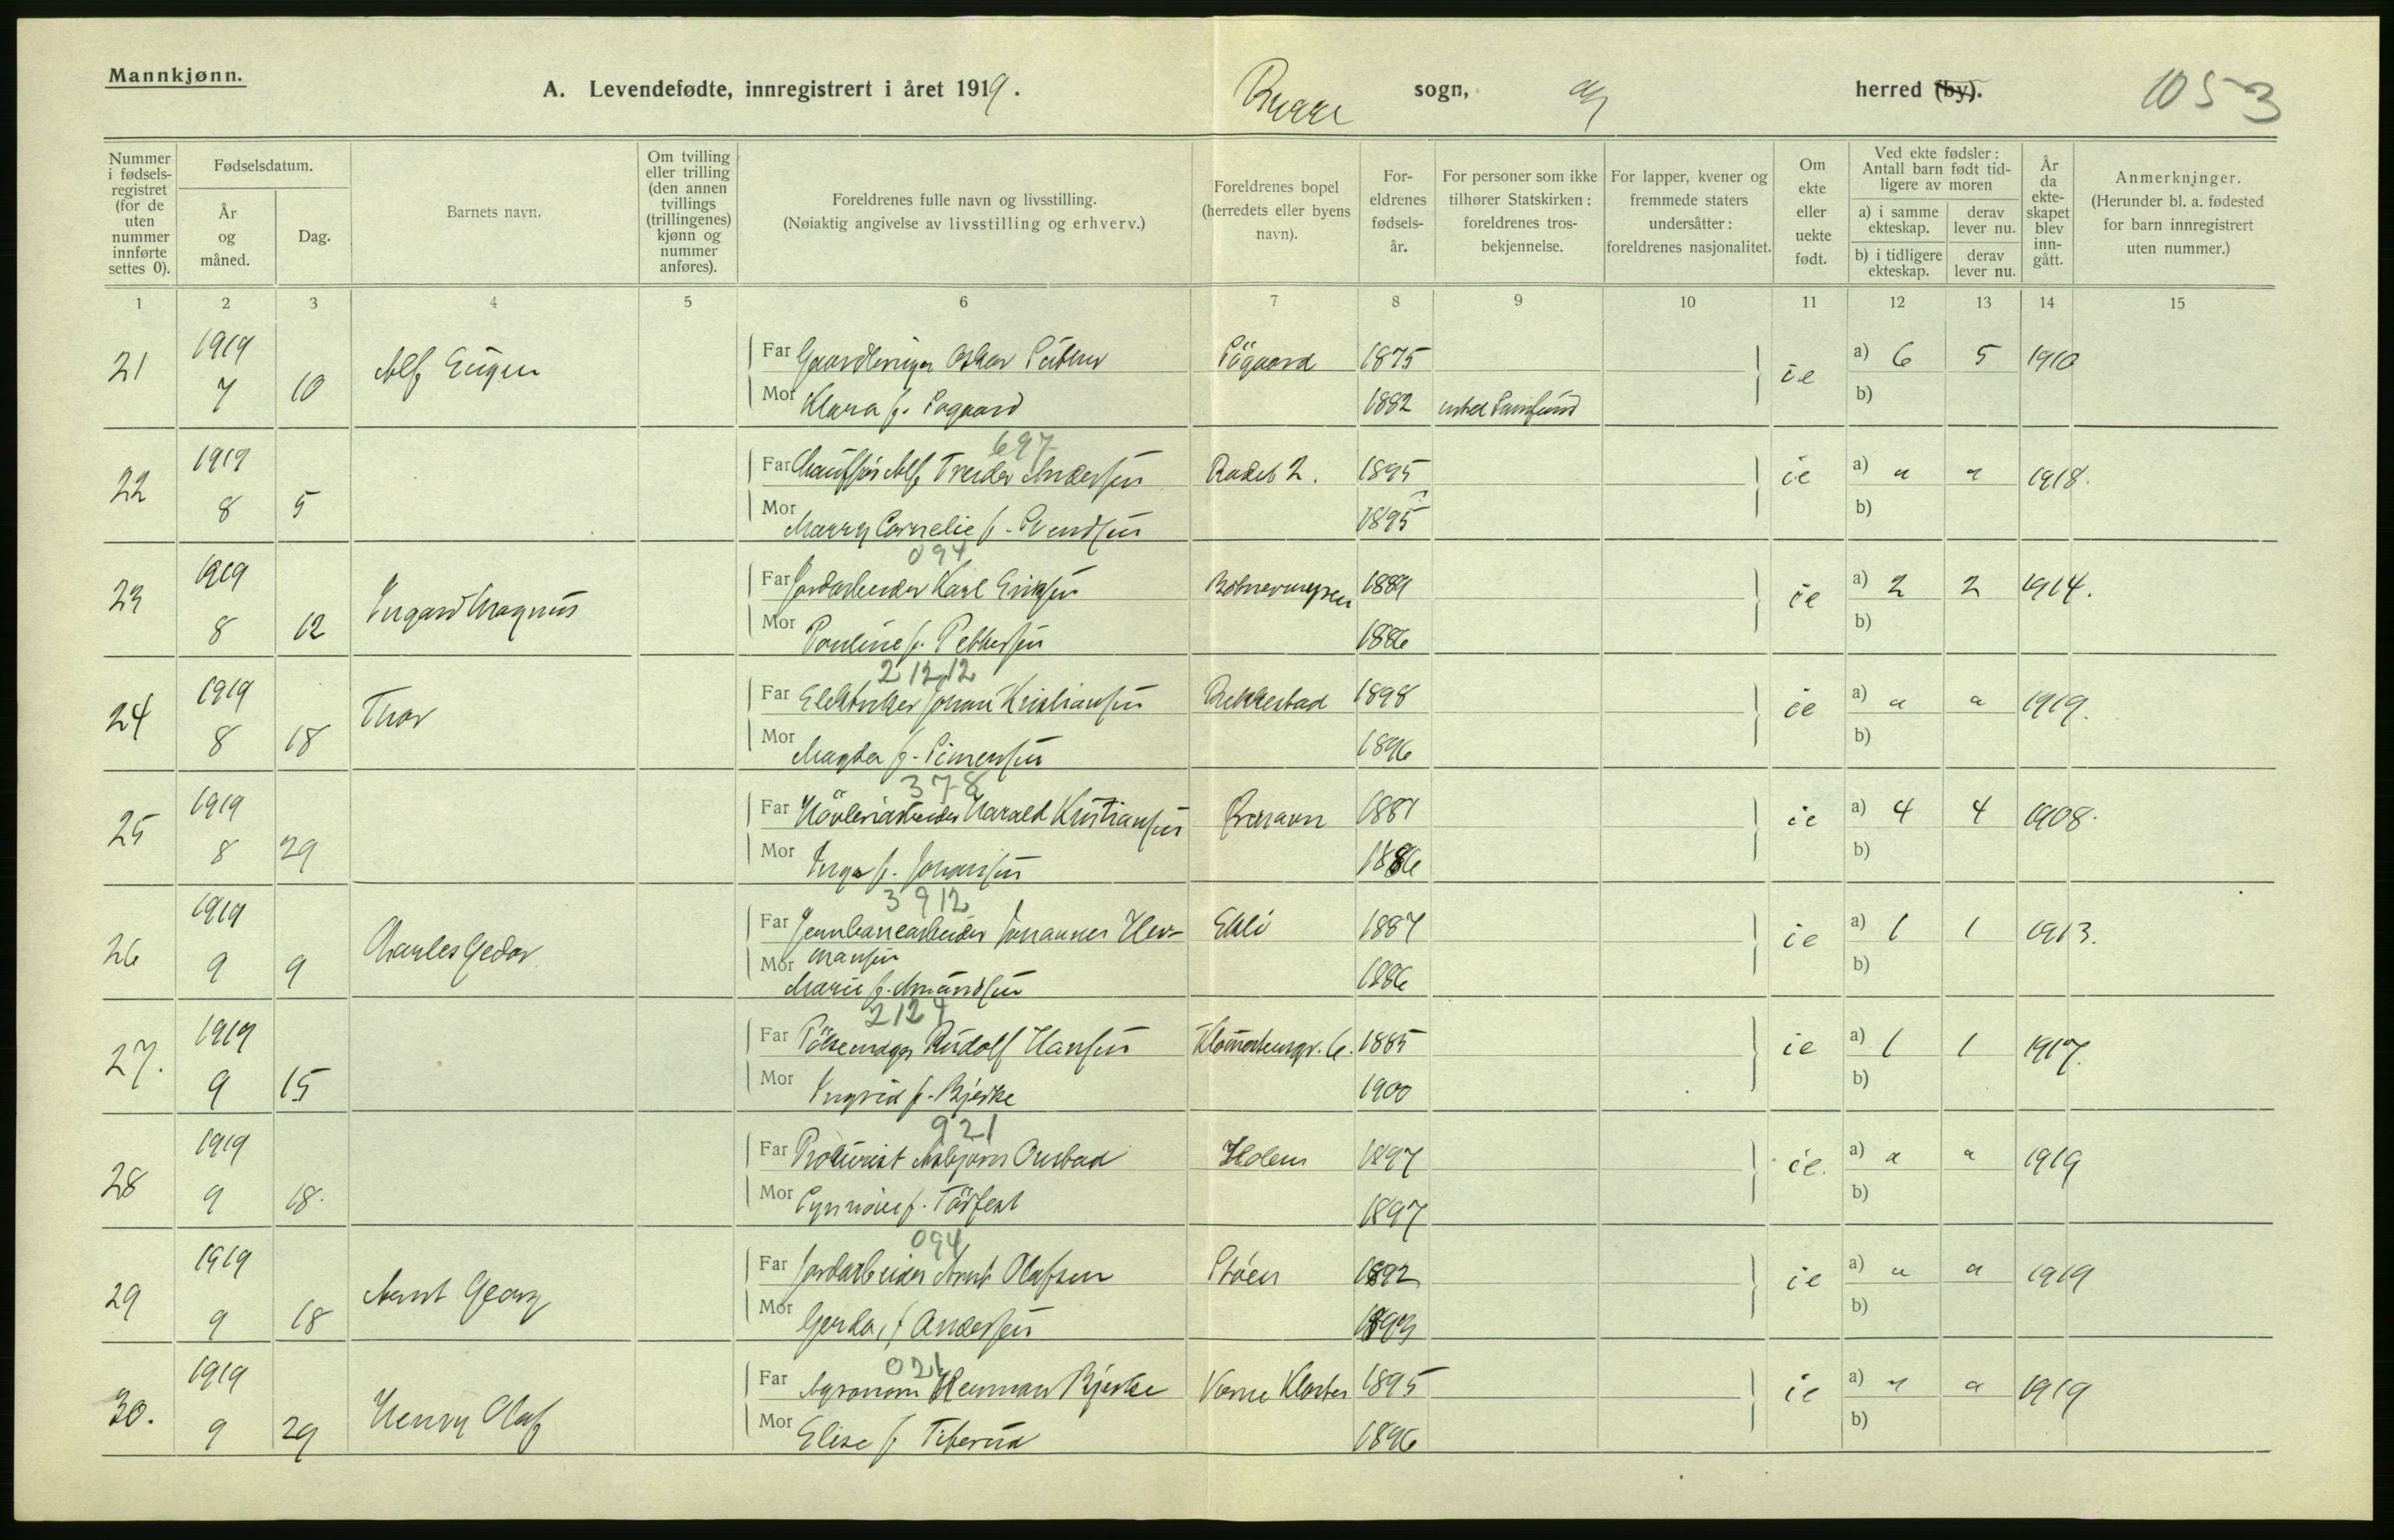 Mannkjønn.
A. Levendefødte, innregistrert i året 1919. Rygge sogn, herred (by). 1053
Nummer i fødselsregistret (for de uten nummer innførte settes 0).
Fødselsdatum.
År og måned.
Dag.
Barnets navn.
Om tvilling eller trilling (den annen tvillings (trillingenes) kjønn og nummer anføres).
Foreldrenes fulle navn og livsstilling.
(Nøiaktig angivelse av livsstilling og erhverv.)
Foreldrenes bopel (herredets eller byens navn).
Foreldrenes fødselsår.
For personer som ikke tilhører Statskirken: foreldrenes trosbekjennelse.
For lapper, kvener og fremmede staters undersåtter: foreldrenes nasjonalitet.
Om ekte eller uekte født.
Ved ekte fødsler: Antall barn født tidligere av moren
a) i samme ekteskap. derav lever nu.
b) i tidligere ekteskap. derav lever nu.
År da ekteskapet blev inngått.
Anmerkninger.
(Herunder bl. a. fødested for barn innregistrert uten nummer.)
1 2 3 4 5 6 7 8 9 10 11 12 13 14 15
21 1919 7 10 Alf Eugen Far Oskar 1875 ie a) 6 5 1910
Mor Klara f. Søgaard 1882 b)
697
22 1919 8 5 Far Chauffør Alf Treider Andersen Rades 2. 1895 ie a) " " 1918.
Mor Marry Cornelie f. Svendsen 1895 b)
094
23 1919 8 12 Ingard Magnus Far Jordarbeider Karl Eriksen 1889 ie a) 2 2 1914.
Mor Pauline f. Pettersen 1886 b)
21212
24 1919 8 18 Thor Far Elektriker Johan Kristiansen Rekkestad 1898 ie a) " " 1919.
Mor Magda f. Simensen 1896 b)
378
25 1919 8 29 Far Høvleriarbeider Harald Kristiansen 1881 ie a) 4 4 1908.
Mor Inga f. Johansen 1886 b)
3912
26 1919 9 9 Charles Gedor Far Jernbanearbeider Johannes Her- Ekli 1887 ie a) 1 1 1913.
mansen
Mor Marie f. Amundsen 1886 b)
2124
27. 1919 9 15 Far Pølsemager Rudolf Hansen 6. 1885 ie a) 1 1 1917.
Mor Ingrid f. Bjerke 1900 b)
921
28 1919 9 18. Far Prokurist Asbjørn Holen 1897 ie. a) " " 1919
Mor Synnøve f. 1897 b)
094
29 1919 9 18 Arnt Georg Far Jordarbeider Arnt Olafsen Støen 1892 ie a) " " 1919
Mor Gerda, f Andersen 1893 b)
021
30. 1919 9 29 Henry Olaf Far Agronom Herman Bjerke Værne Kloster 1895 ie a) " " 1919
Mor Elise f. 1896 b)